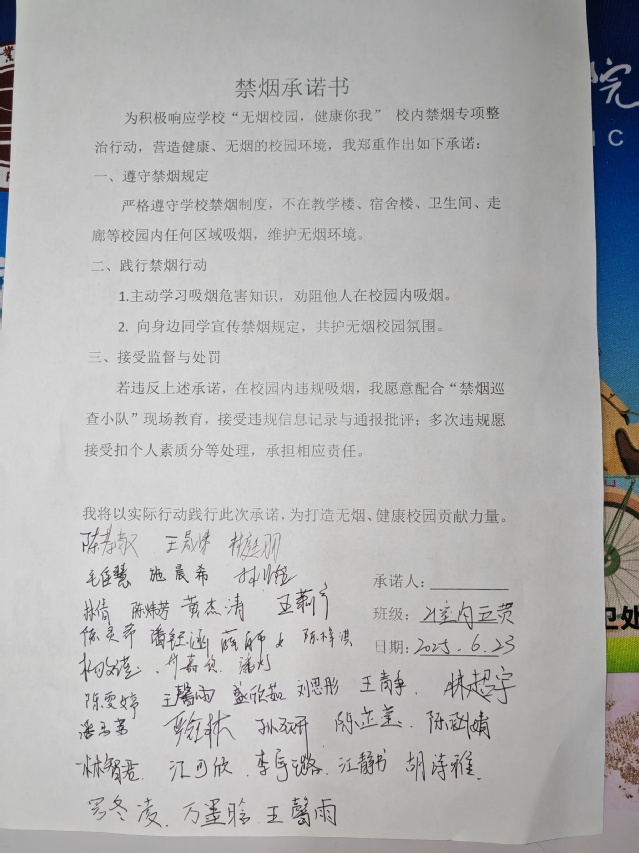 禁烟承诺书
为积极响应学校“无烟校园，健康你我” 校内禁烟专项整
治行动，营造健康、无烟的校园环境，我郑重作出如下承诺：
一、遵守禁烟规定
严格遵守学校禁烟制度，不在教学楼、宿舍楼、卫生间、走
廊等校园内任何区域吸烟，维护无烟环境。
二、践行禁烟行动
1.主动学习吸烟危害知识，劝阻他人在校园内吸烟。
2. 向身边同学宣传禁烟规定，共护无烟校园氛围。
三、接受监督与处罚
若违反上述承诺，在校园内违规吸烟，我愿意配合“禁烟巡
查小队”现场教育，接受违规信息记录与通报批评；多次违规愿
接受扣个人素质分等处理，承担相应责任。
我将以实际行动践行此次承诺，为打造无烟、健康校园贡献力量。
施晨希
承诺人：
林倩 陈炜芳 黄杰涛 王莉
班级：
陈梓淇
日期：2025.6.23
陈雯婷 王馨雨 盛欣茹 刘思彤 王静 林超宇
林智君 江可欣 李 江静书 胡诗雅
罗冬凌 万墨晗 王馨雨
院
卫处